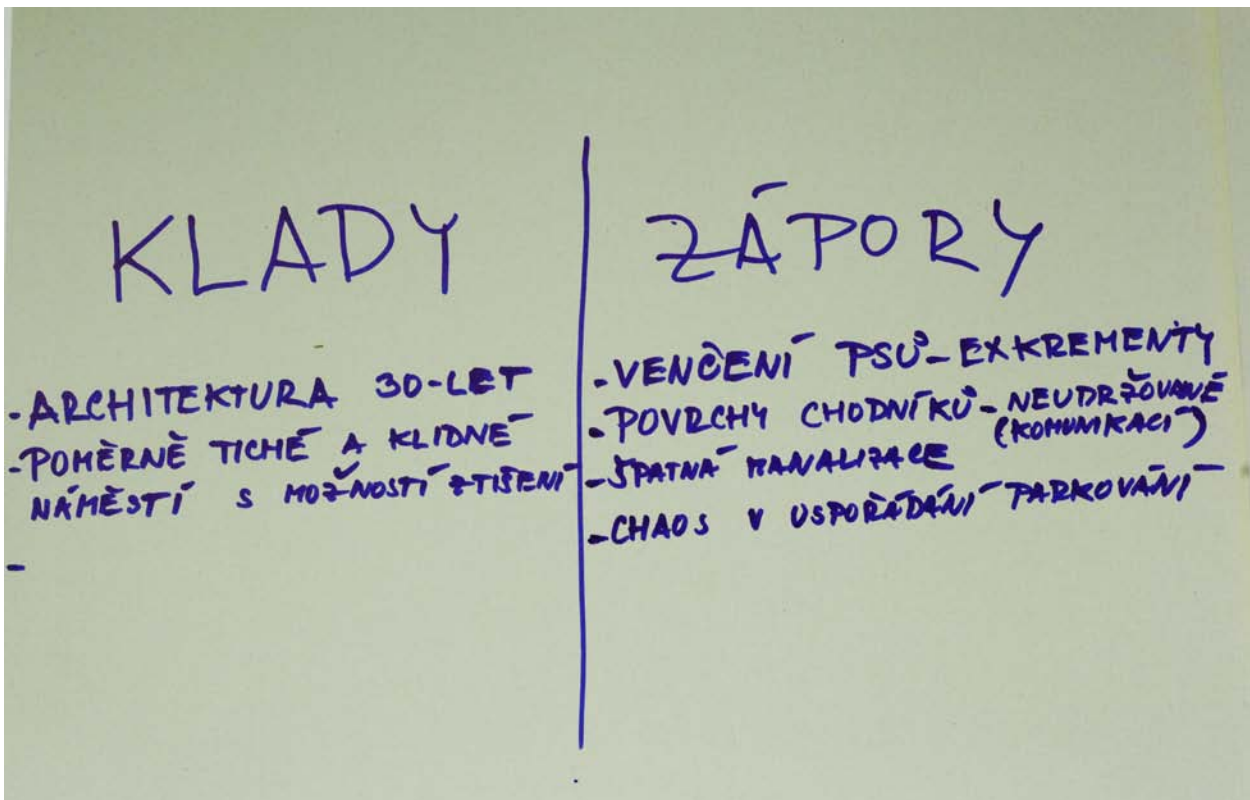 KLADY
-ARCHITEKTURA 30-LET
-POMĚRNĚ TICHÉ A KLIDNÉ
NÁMĚSTÍ S MOŽNOSTÍ ZTIŠENÍ
-
ZÁPORY
-VENČENÍ PSŮ-EXKREMENTY
-POVRCHY CHODNÍKŮ-NEUDRŽOVANÉ
(KOMUNIKACÍ)
-ŠPATNÁ KANALIZACE
-CHAOS V USPOŘÁDÁNÍ PARKOVÁNÍ